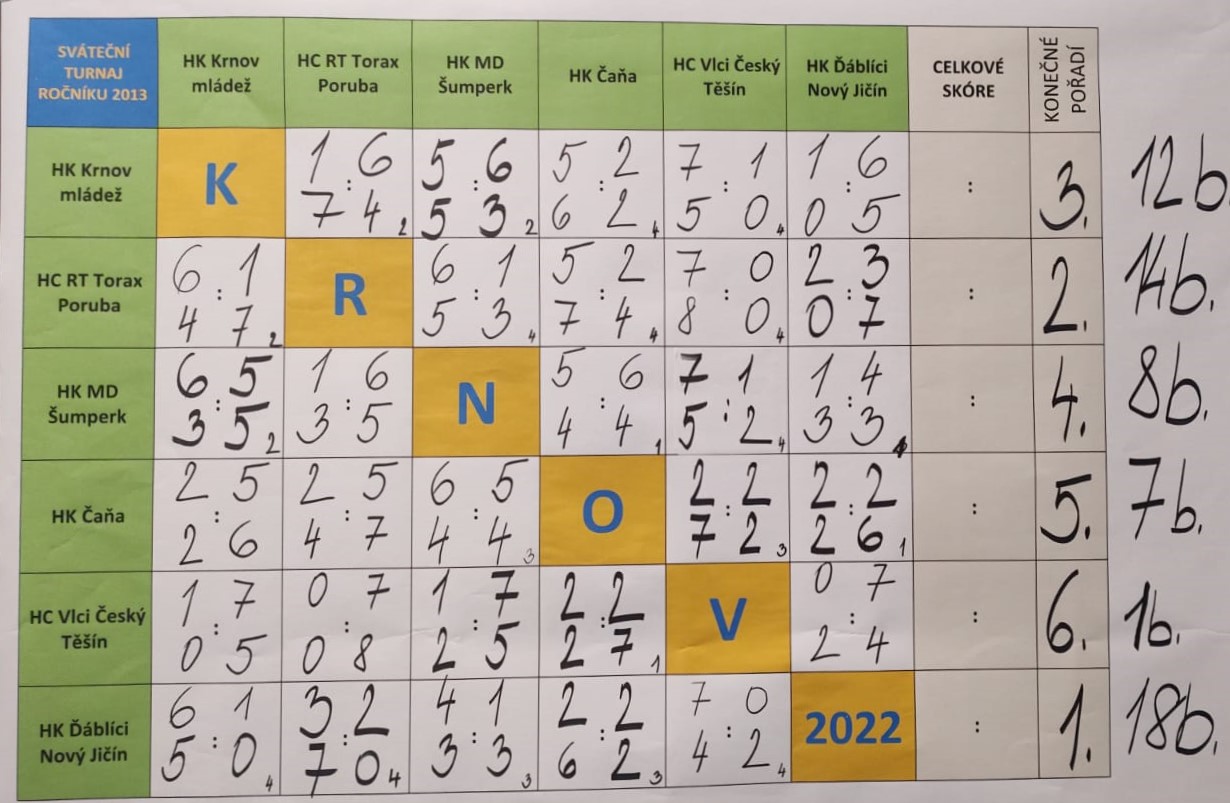 SVÁTEČNÍ TURNAJ ROČNÍKU 2013 HK Krnov mládež HC RT Torax Poruba HK MD Šumperk HK Čaňa HC Vlci Český Těšín HK Ďáblíci Nový Jičín CELKOVÉ SKÓRE KONEČNÉ POŘADÍ
HK Krnov mládež K 1:6 7 4 2 5:6 5 3 2 5:2 6 2 4 7:1 5 0 4 1:6 0 5 : 3. 12b.
HC RT Torax Poruba 6:1 4 7 2 R 6:1 5 3 4 5:2 7 4 4 7:0 8 0 4 2:3 0 7 : 2. 14b.
HK MD Šumperk 6:5 3 5 2 1:6 3 5 N 5:6 4 4 1 7:1 5 2 4 1:4 3 3 1 : 4. 8b.
HK Čaňa 2:5 2 6 2:5 4 7 6:5 4 4 3 O 2:2 7 2 3 2:2 2 6 1 : 5. 7b.
HC Vlci Český Těšín 1:7 0 5 0:7 0 8 1:7 2 5 2:2 2 7 1 V 0:7 2 4 : 6. 1b.
HK Ďáblíci Nový Jičín 6:1 5 0 4 3:2 7 0 4 4:1 3 3 3 2:2 6 2 3 7:0 4 2 4 2022 : 1. 18b.